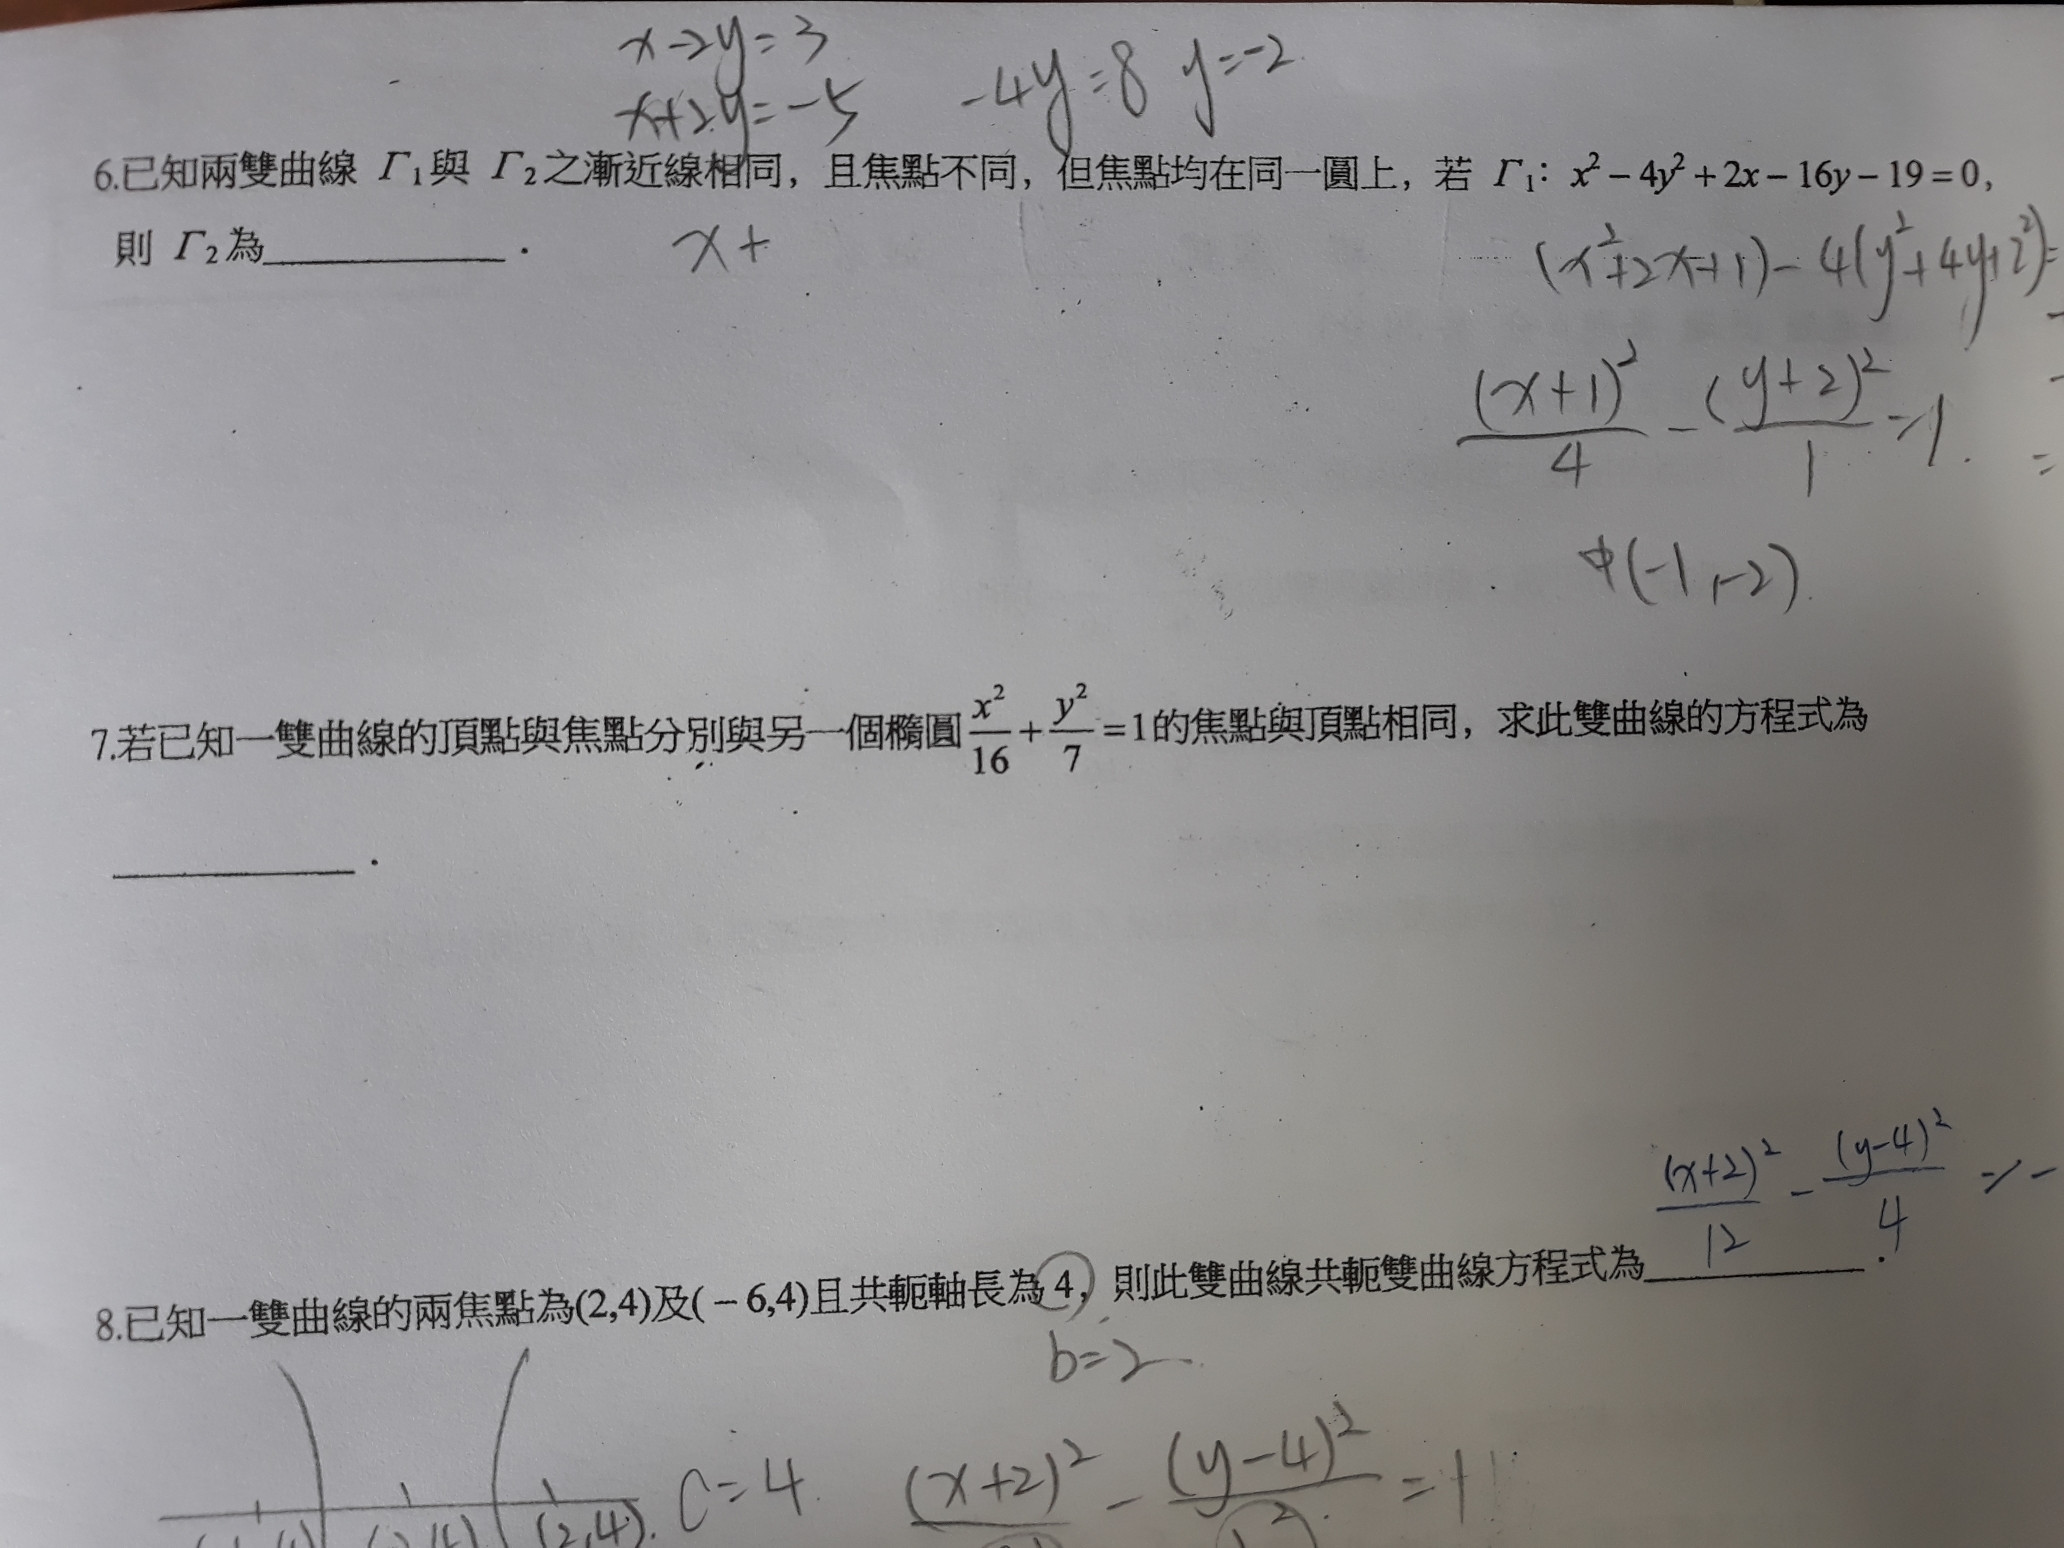 x-2y=3
x+2y=-5 -4y=8 y=-2
6.已知兩雙曲線 Γ₁與 Γ₂之漸近線相同，且焦點不同，但焦點均在同一圓上，若 Γ₁：x²－4y²＋2x－16y－19＝0，
則 Γ₂為__________．
x+
(x²+2x+1)-4(y²+4y+2²)=
(x+1)²/4 - (y+2)²/1 = 1
中(-1,-2)
7.若已知一雙曲線的頂點與焦點分別與另一個橢圓 x²/16 + y²/7 = 1的焦點與頂點相同，求此雙曲線的方程式為
__________．
(x+2)²/12 - (y-4)²/4 = -
8.已知一雙曲線的兩焦點為(2,4)及(－6,4)且共軛軸長為4，則此雙曲線共軛雙曲線方程式為__________．
b=2
c=4 (x+2)² - (y-4)² = 1
(2,4)